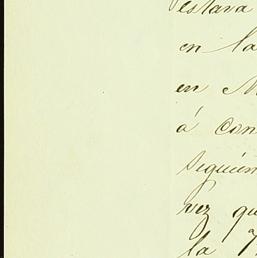 estava
en la
en M
á con
siguien
vez qu
la 7